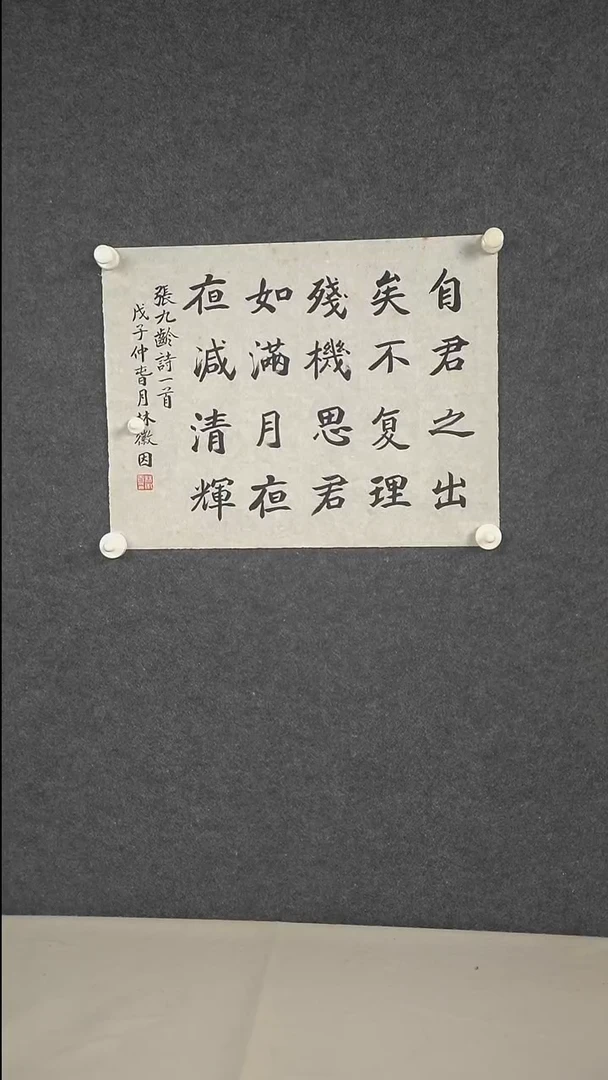 自君之出
矣不复理
殘機思君
如滿月夜
夜減清輝
張九齡詩一首
戊子仲旾月林徽因